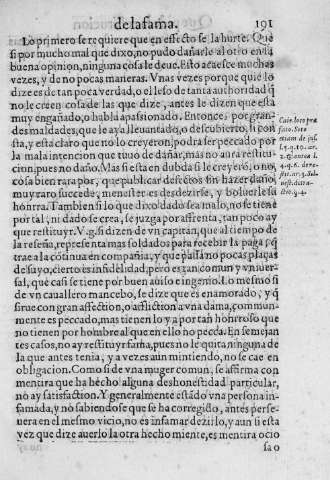 de la fama. 191
Lo primero se requiere que en effecto se la hurte. Que
si por mucho mal que dixo, no pudo dañarle al otro en la
buena opinion, ninguna cosa le deue. Esto acaesce muchas
vezes, y de no pocas maneras. Vnas vezes porque quiē lo
dize es de tan poca verdad, o el leso de tanta auctoridad q̄
no le creen cosa de las que dize, antes le dizen que esta
muy engañado, o hablá apasionado. Entonces por gran-
des maldades, que le aya lleuantado, o descubierto, si con
sta, y esta claro que no lo creyeron, podra ser peccado por
la mala intencion que tuuo de dañar, mas no aura restitu-
cion, pues no daño. Mas si esta en dubda si le creyerō, o no,
cosa bien rara por, que publicar defectos sin hazer daño,
muy raro succede, menester es desdezirse, y boluerle su
hónrra. Tambien si lo que dixo dado sea malo, no se tiene
por tal, ni dado se crea, se juzga por affrenta, tan poco ay
que restituyr. V. g. si dizen de vn capitan, que al tiempo de
la reseña, represento mas soldados para recebir la paga q̄
trae a la cōtinua en compañia, y que passa no pocas plaças
de suyo, cierto es infidelidad, pero es tan comun y vniuer-
sal, que casi se tiene por buen auiso e ingenio. Lo mesmo si
de vn cauallero mancebo, se dize que es enamorado, y q̄
sirue con gran affection, o affliction a vna dama, commun-
mente es peccado, mas tienen lo ya por tan honroso que
no tienen por hombre al que en ello no pecca. En semejan
tes casos, no ay restituyr fama, pues no le quita ninguna de
la que antes tenia, y a vezes aun mintiendo, no se cae en
obligacion. Como si de vna muger comun, se affirma con
mentira que ha hecho alguna deshonestidad particular,
no ay satisfaction. Y generalmente estādo vna persona in-
famada, y no sabiendose que se ha corregido, antes perse-
uera en el mesmo vicio, no es infamar dezirlo, y aun si esta
vez que dize auerlo la otra hecho miente, es mentira ocio
sa o